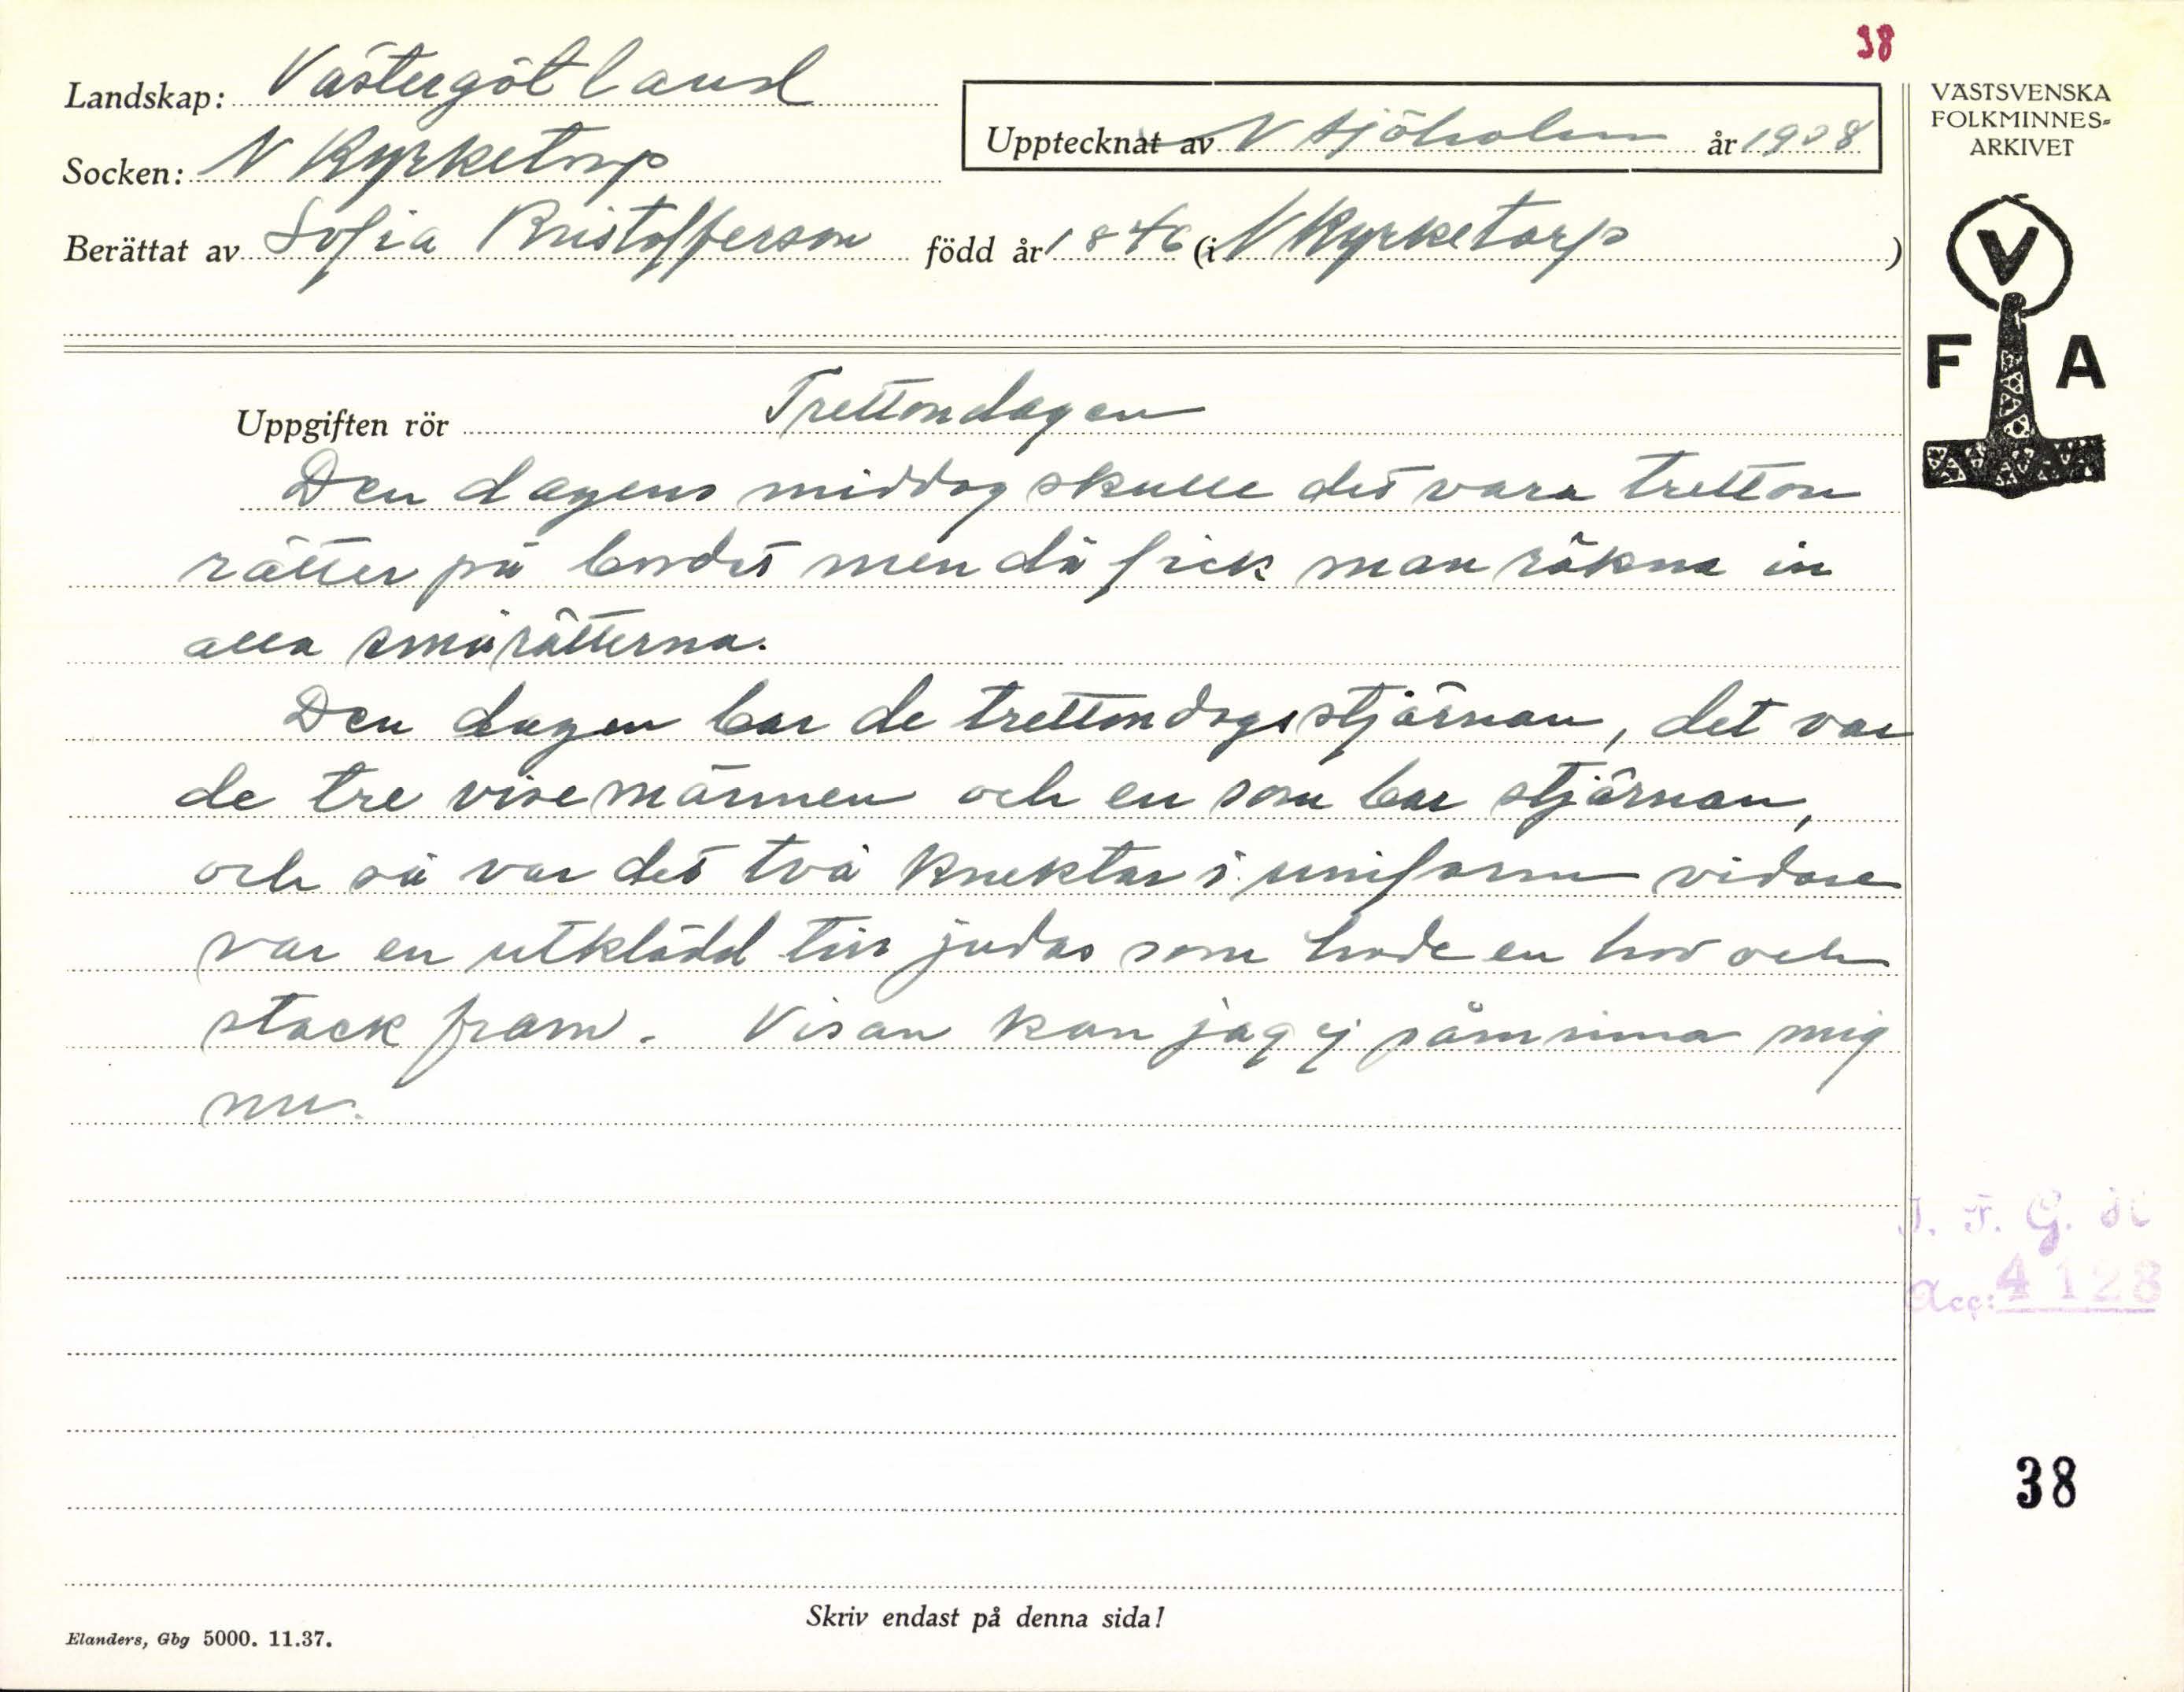 38
Landskap: Västergötland
Socken: N Kyrketorp
Upptecknat av N Sjöholm år 1938
Berättat av Sofia Kristofferson född år 1846 (i N Kyrketorp)
VÄSTSVENSKA
FOLKMINNES-
ARKIVET
V
F A
Uppgiften rör Trettondagen
Den dagens middag skulle det vara tretton
rätter på bordet men då fick man räkna in
alla smårätterna.
Den dagen bar de trettondagsstjärnan, det var
de tre vise männen och en som bar stjärnan,
och så var det två knektar i uniform vidare
var en utklädd till judas som hade en hov och
stack fram. Visan kan jag ej påminna mig
nu.
I. F. G. H
Acc: 4128
38
Skriv endast på denna sida!
Elanders, Gbg 5000. 11.37.